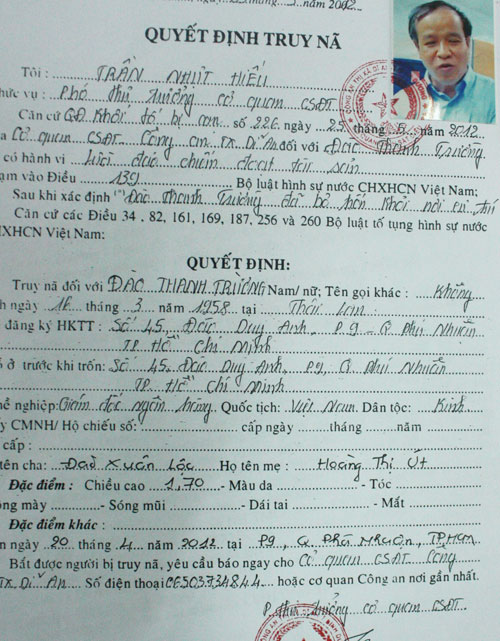 năm 2012
QUYẾT ĐỊNH TRUY NÃ
Tôi : TRẦN NHỰT HIẾU
hức vụ : Phó Thủ trưởng cơ quan CSĐT
Căn cứ QĐ Khởi tố bị can số 226 ngày 25 tháng 5 năm 2012
a Cơ quan CSĐT Công an TX Dĩ An đối với Đào Thanh Trường
có hành vi lừa đảo chiếm đoạt tài sản
ạm vào Điều 139 Bộ luật hình sự nước CHXHCN Việt Nam;
Sau khi xác định (*) Đào Thanh Trường đã bỏ trốn khỏi nơi cư trú
Căn cứ các Điều 34 , 82, 161, 169, 187, 256 và 260 Bộ luật tố tụng hình sự nước
HXHCN Việt Nam:
QUYẾT ĐỊNH:
Truy nã đối với ĐÀO THANH TRƯỜNG Nam/ nữ; Tên gọi khác : Không
h ngày tháng 3 năm 1958 tại
đăng ký HKTT : Số 45, Đào Duy Anh, P9 - Q Phú Nhuận
TP Hồ Chí Minh
ở trước khi trốn: Số 45, Đào Duy Anh, P9, Q Phú Nhuận
TP. Hồ Chí Minh
hề nghiệp: Giám đốc ngân hàng Quốc tịch: Việt Nam Dân tộc: Kinh
y CMNH/ Hộ chiếu số: cấp ngày tháng năm
cấp :
tên cha: Đào Xuân Lộc Họ tên mẹ : Hoàng Thị Út
Đặc điểm : Chiều cao 1,70 - Màu da - Tóc
ông mày - Sóng mũi - Dái tai - Mắt
Đặc điểm khác :
n ngày 20 tháng 4 năm 2012 tại P9, Q Phú Nhuận, TPHCM
Bắt được người bị truy nã, yêu cầu báo ngay cho Cơ quan CSĐT Công
TX. Dĩ An Số điện thoại 06503734844 hoặc cơ quan Công an nơi gần nhất.
P. Thủ trưởng cơ quan CSĐT